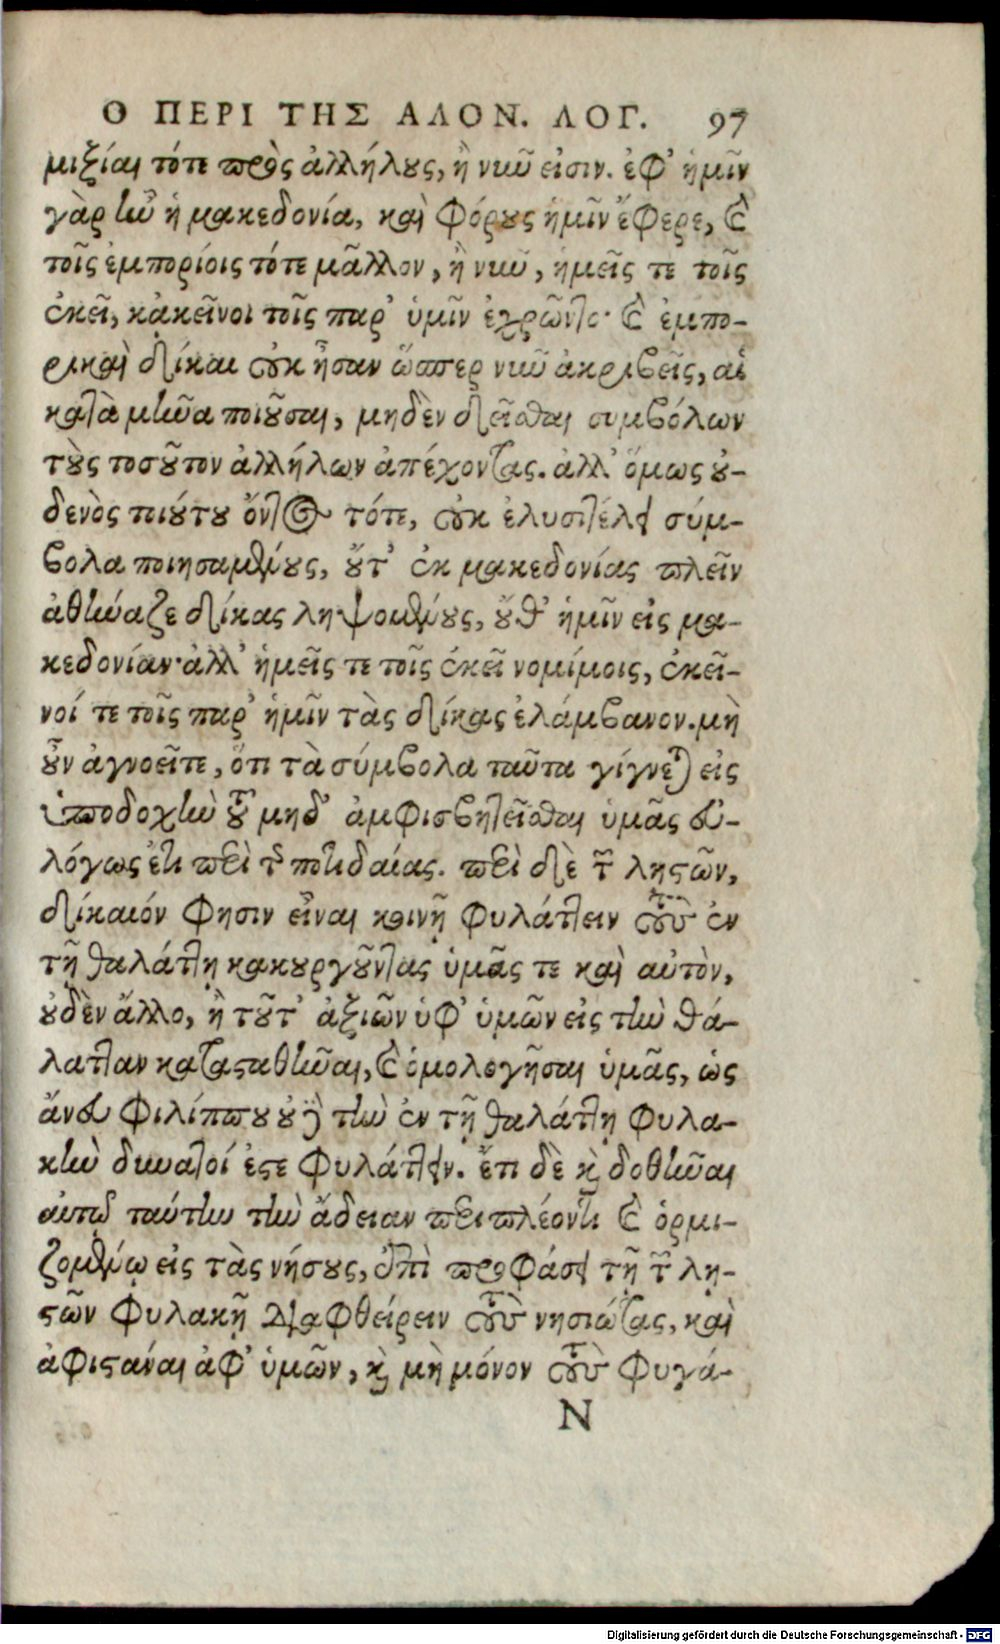 Ο ΠΕΡΙ ΤΗΣ ΑΛΟΝ. ΛΟΓ. 97
μιξίαι τότε πρὸς ἀλλήλους, ἢ νῦν εἰσιν. ἐφ' ἡμῖν
γὰρ ἦν ἡ μακεδονία, καὶ φόρους ἡμῖν ἔφερε, καὶ
τοῖς ἐμπορίοις τότε μᾶλλον, ἢ νῦν, ἡμεῖς τε τοῖς
ἐκεῖ, κἀκεῖνοι τοῖς παρ' ὑμῖν ἐχρῶντο· καὶ ἐμπο-
ρικαὶ δίκαι οὐκ ἦσαν ὥσπερ νῦν ἀκριβεῖς, αἱ
κατὰ μῆνα ποιοῦσαι, μηδὲν δεῖσθαι συμβόλων
τοὺς τοσοῦτον ἀλλήλων ἀπέχοντας. ἀλλ' ὅμως οὐ-
δενὸς τοιούτου ὄντος τότε, οὐκ ἐλυσιτέλει σύμ-
βολα ποιησαμένους, οὔτ' ἐκ μακεδονίας πλεῖν
ἀθήναζε δίκας ληψομένους, οὔθ' ἡμῖν εἰς μα-
κεδονίαν· ἀλλ' ἡμεῖς τε τοῖς ἐκεῖ νομίμοις, ἐκεῖ-
νοί τε τοῖς παρ' ἡμῖν τὰς δίκας ἐλάμβανον. μὴ
οὖν ἀγνοεῖτε, ὅτι τὰ σύμβολα ταῦτα γίγνεται εἰς
ὑποδοχὴν τοῦ μηδ' ἀμφισβητεῖσθαι ὑμᾶς εὐ-
λόγως ἔτι περὶ τῆς ποτιδαίας. περὶ δὲ τῶν λῃστῶν,
δίκαιόν φησιν εἶναι κοινῇ φυλάττειν τοὺς ἐν
τῇ θαλάττῃ κακουργοῦντας ὑμᾶς τε καὶ αὐτὸν,
οὐδὲν ἄλλο, ἢ τοῦτ' ἀξιῶν ὑφ' ὑμῶν εἰς τὴν θά-
λατταν κατασταθῆναι, καὶ ὁμολογῆσαι ὑμᾶς, ὡς
ἄνευ φιλίππου οὐδὲ τὴν ἐν τῇ θαλάττῃ φυλα-
κὴν δυνατοί ἐστε φυλάττειν. ἔτι δὲ καὶ δοθῆναι
αὐτῷ ταύτην τὴν ἄδειαν περιπλέοντι καὶ ὁρμι-
ζομένῳ εἰς τὰς νήσους, ἐπὶ προφάσει τῇ τῶν λῃ-
στῶν φυλακῇ διαφθείρειν τοὺς νησιώτας, καὶ
ἀφιστάναι ἀφ' ὑμῶν, καὶ μὴ μόνον τοὺς φυγά-
N
Digitalisierung gefördert durch die Deutsche Forschungsgemeinschaft - DFG